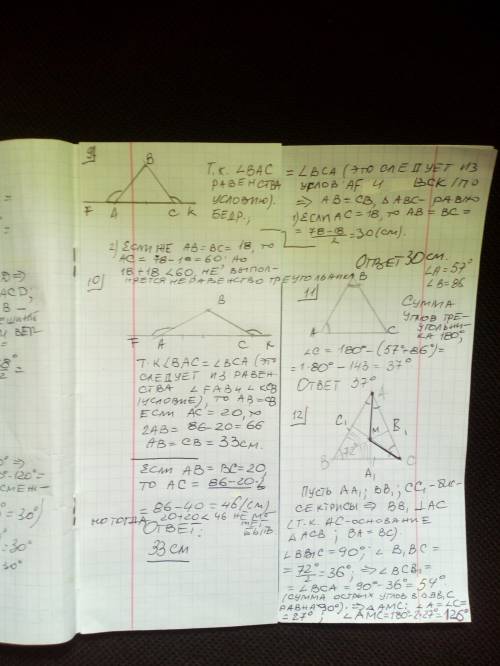 9)
B
F A C K
Т.К. ∠BAC = ∠BCA (ЭТО СЛЕДУЕТ ИЗ
РАВЕНСТВА УГЛОВ AF И BCK/ПО
УСЛОВИЮ). ⇒ AB=CB, ΔABC- РАВНО
БЕДР., 1) ЕСЛИ AC=18, ТО AB=BC=
= 78-18/2 = 30 (СМ).
2) ЕСЛИ ЖЕ AB=BC=18, ТО
AC=78-18=60; НО
18+18<60, НЕ ВЫПОЛ-
НЯЕТСЯ НЕРАВЕНСТВО ТРЕУГОЛЬНИКА
ОТВЕТ 30 СМ.
10)
B
F A C K
Т.К ∠BAC=∠BCA (ЭТО
СЛЕДУЕТ ИЗ РАВЕН-
СТВА ∠FAB И ∠KCB
(УСЛОВИЕ), ТО AB=CB
ЕСЛИ AC=20, ТО
2AB= 86-20=66
AB=CB=33СМ.
ЕСЛИ AB=BC=20,
ТО AC=86-20·2
=86-40=46(СМ)
НО ТОГДА 20+20<46 НЕ МО
ОТВЕТ:
33 СМ
11)
B
A C
∠A=57°
∠B=86
СУММА
УГЛОВ ТРЕ-
УГОЛЬНИ-
КА 180°
∠C=180°-(57°+86°)=
=180-143=37°
ОТВЕТ 37°
12)
A
C₁ B₁
M
B 72° C
A₁
ПУСТЬ AA₁; BB₁; CC₁-БИС-
СЕКТРИСЫ ⇒ BB₁⊥AC
(Т.К. AC-ОСНОВАНИЕ
∠ACB; BA=BC).
∠BB₁C=90°; ∠B₁BC=
=72°/2=36°; ⇒ ∠BCB₁=
=∠BCA=90°-36°=54°.
(СУММА ОСТРЫХ УГЛОВ В ΔBB₁C
РАВНА 90°). ⇒ ΔAMC: ∠A=∠C=
=27°; ∠AMC=180°-2·27°=126°